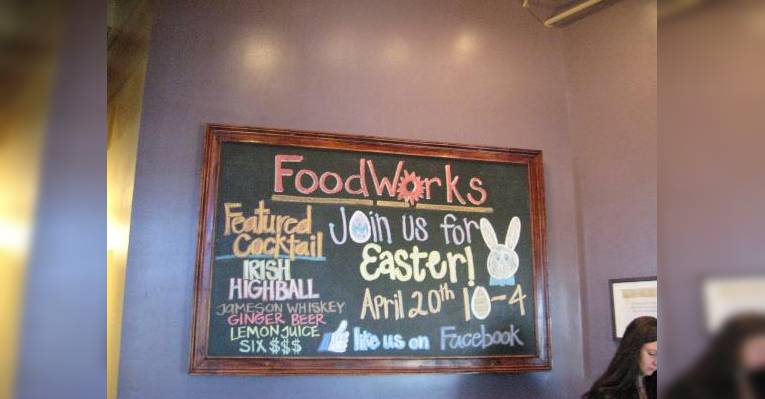 FoodWorks
Featured
Cocktail
IRISH
HIGHBALL
JAMESON WHISKEY
GINGER BEER
LEMON JUICE
SIX $$$
Join us for
Easter!
April 20th 10-4
like us on Facebook